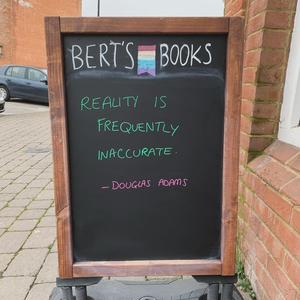 BERT'S BOOKS
REALITY IS
FREQUENTLY
INACCURATE.
— DOUGLAS ADAMS